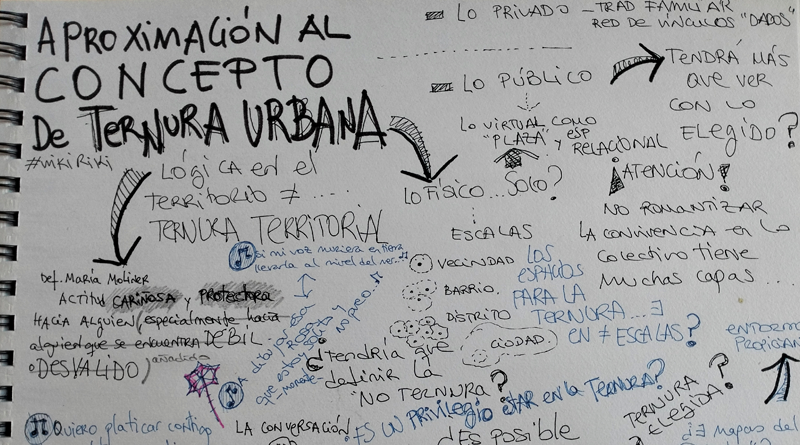 APROXIMACIÓN AL
CONCEPTO
De TERNURA URBANA
#wikiRiki
LÓGICA en el
TERRITORIO ≠ .....
TERNURA TERRITORIAL
Si mi voz muriera en tierra
llevarla al nivel del mar...
Def. María Moliner
ACTITUD CARIÑOSA y PROTECTORA
HACIA ALGUIEN (especialmente hacia
alguien que se encuentra DÉBIL
o DESVALIDO) añadido
que estoy
no preo...
Quiero platicar contigo
LA CONVERSACIÓN
LO PRIVADO — TRAD FAMILIAR
RED DE VÍNCULOS "DADOS"
LO PÚBLICO
TENDRÁ MÁS
QUE VER
CON LO
ELEGIDO?
LO VIRTUAL COMO
"PLAZA" ESP
y RELACIONAL
LO FÍSICO... SOLO?
ESCALAS
VECINDAD
BARRIO
DISTRITO
CIUDAD
¡ATENCIÓN!
NO ROMANTIZAR
LA CONVIVENCIA en LO
COLECTIVO TIENE
MUCHAS CAPAS ...
LOS
ESPACIOS
PARA LA
TERNURA... ∃
EN ≠ ESCALAS?
¿Tendría que
definir la
"NO TERNURA"?
ES UN PRIVILEGIO ESTAR en la TERNURA?
¿ES POSIBLE
TERNURA
ELEGIDA?
ENTORNO
¿∃ mapas del